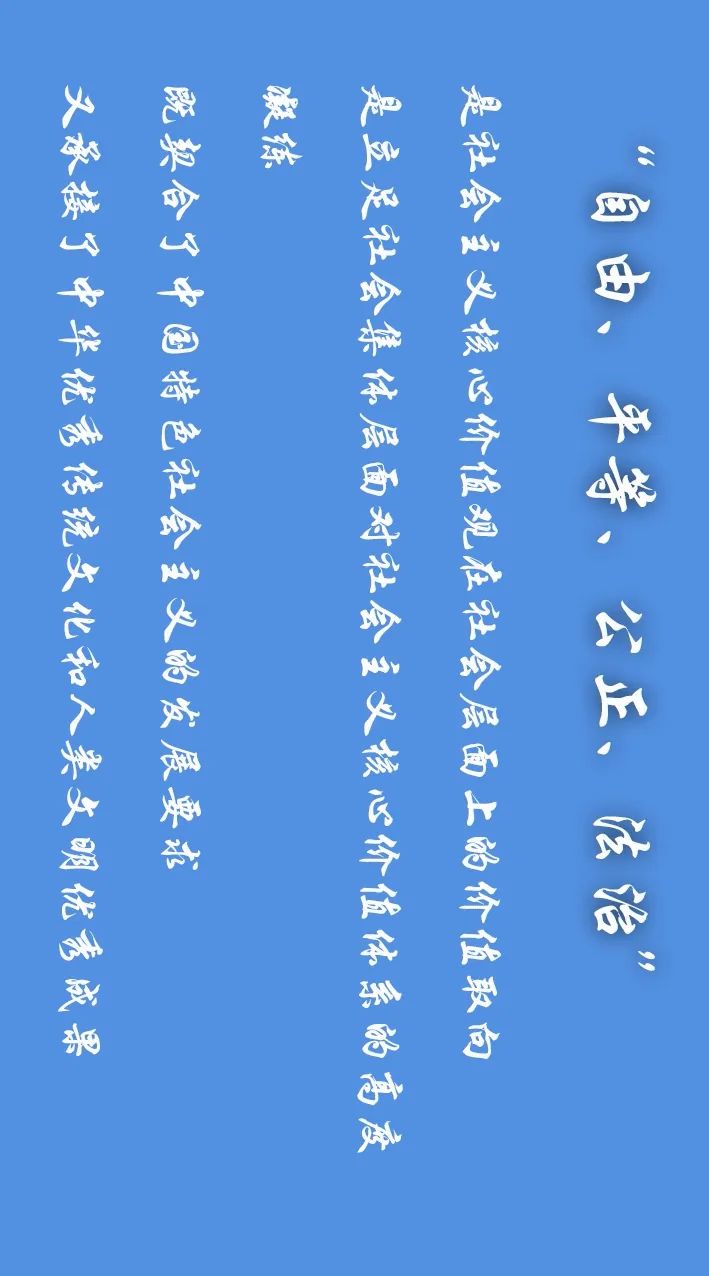 “自由、平等、公正、法治”
是社会主义核心价值观在社会层面上的价值取向
是立足社会集体层面对社会主义核心价值体系的高度
凝练
既契合了中国特色社会主义的发展要求
又承接了中华优秀传统文化和人类文明优秀成果